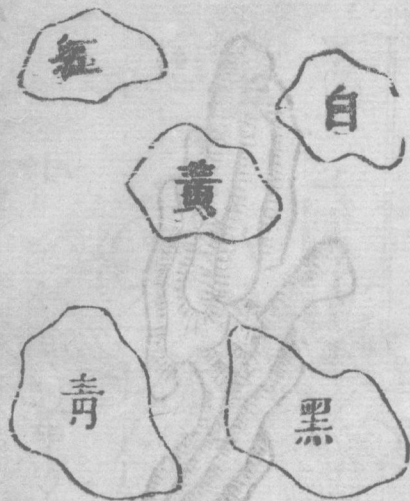 紅
白
黃
青
黑